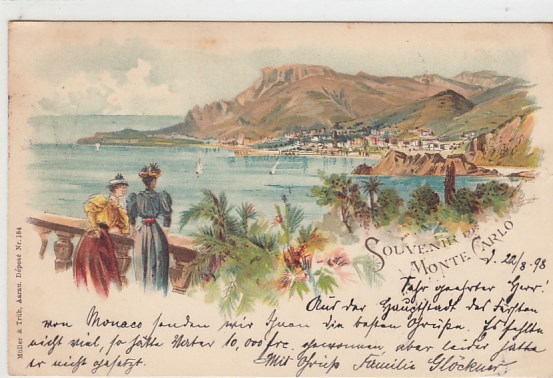 SOUVENIR DE
MONTE CARLO
d. 22/3 98
Sehr geehrter Herr!
Aus der Hauptstadt des Fürsten
von Monaco senden wir Ihnen die besten Grüße. Es fehlte
nicht viel, so hätte Vater 10,000 frc. gewonnen aber leider hatte
er nicht gesetzt. Mit Gruß Familie Glöckner.
Müller & Trüb, Aarau. Déposé Nr. 184